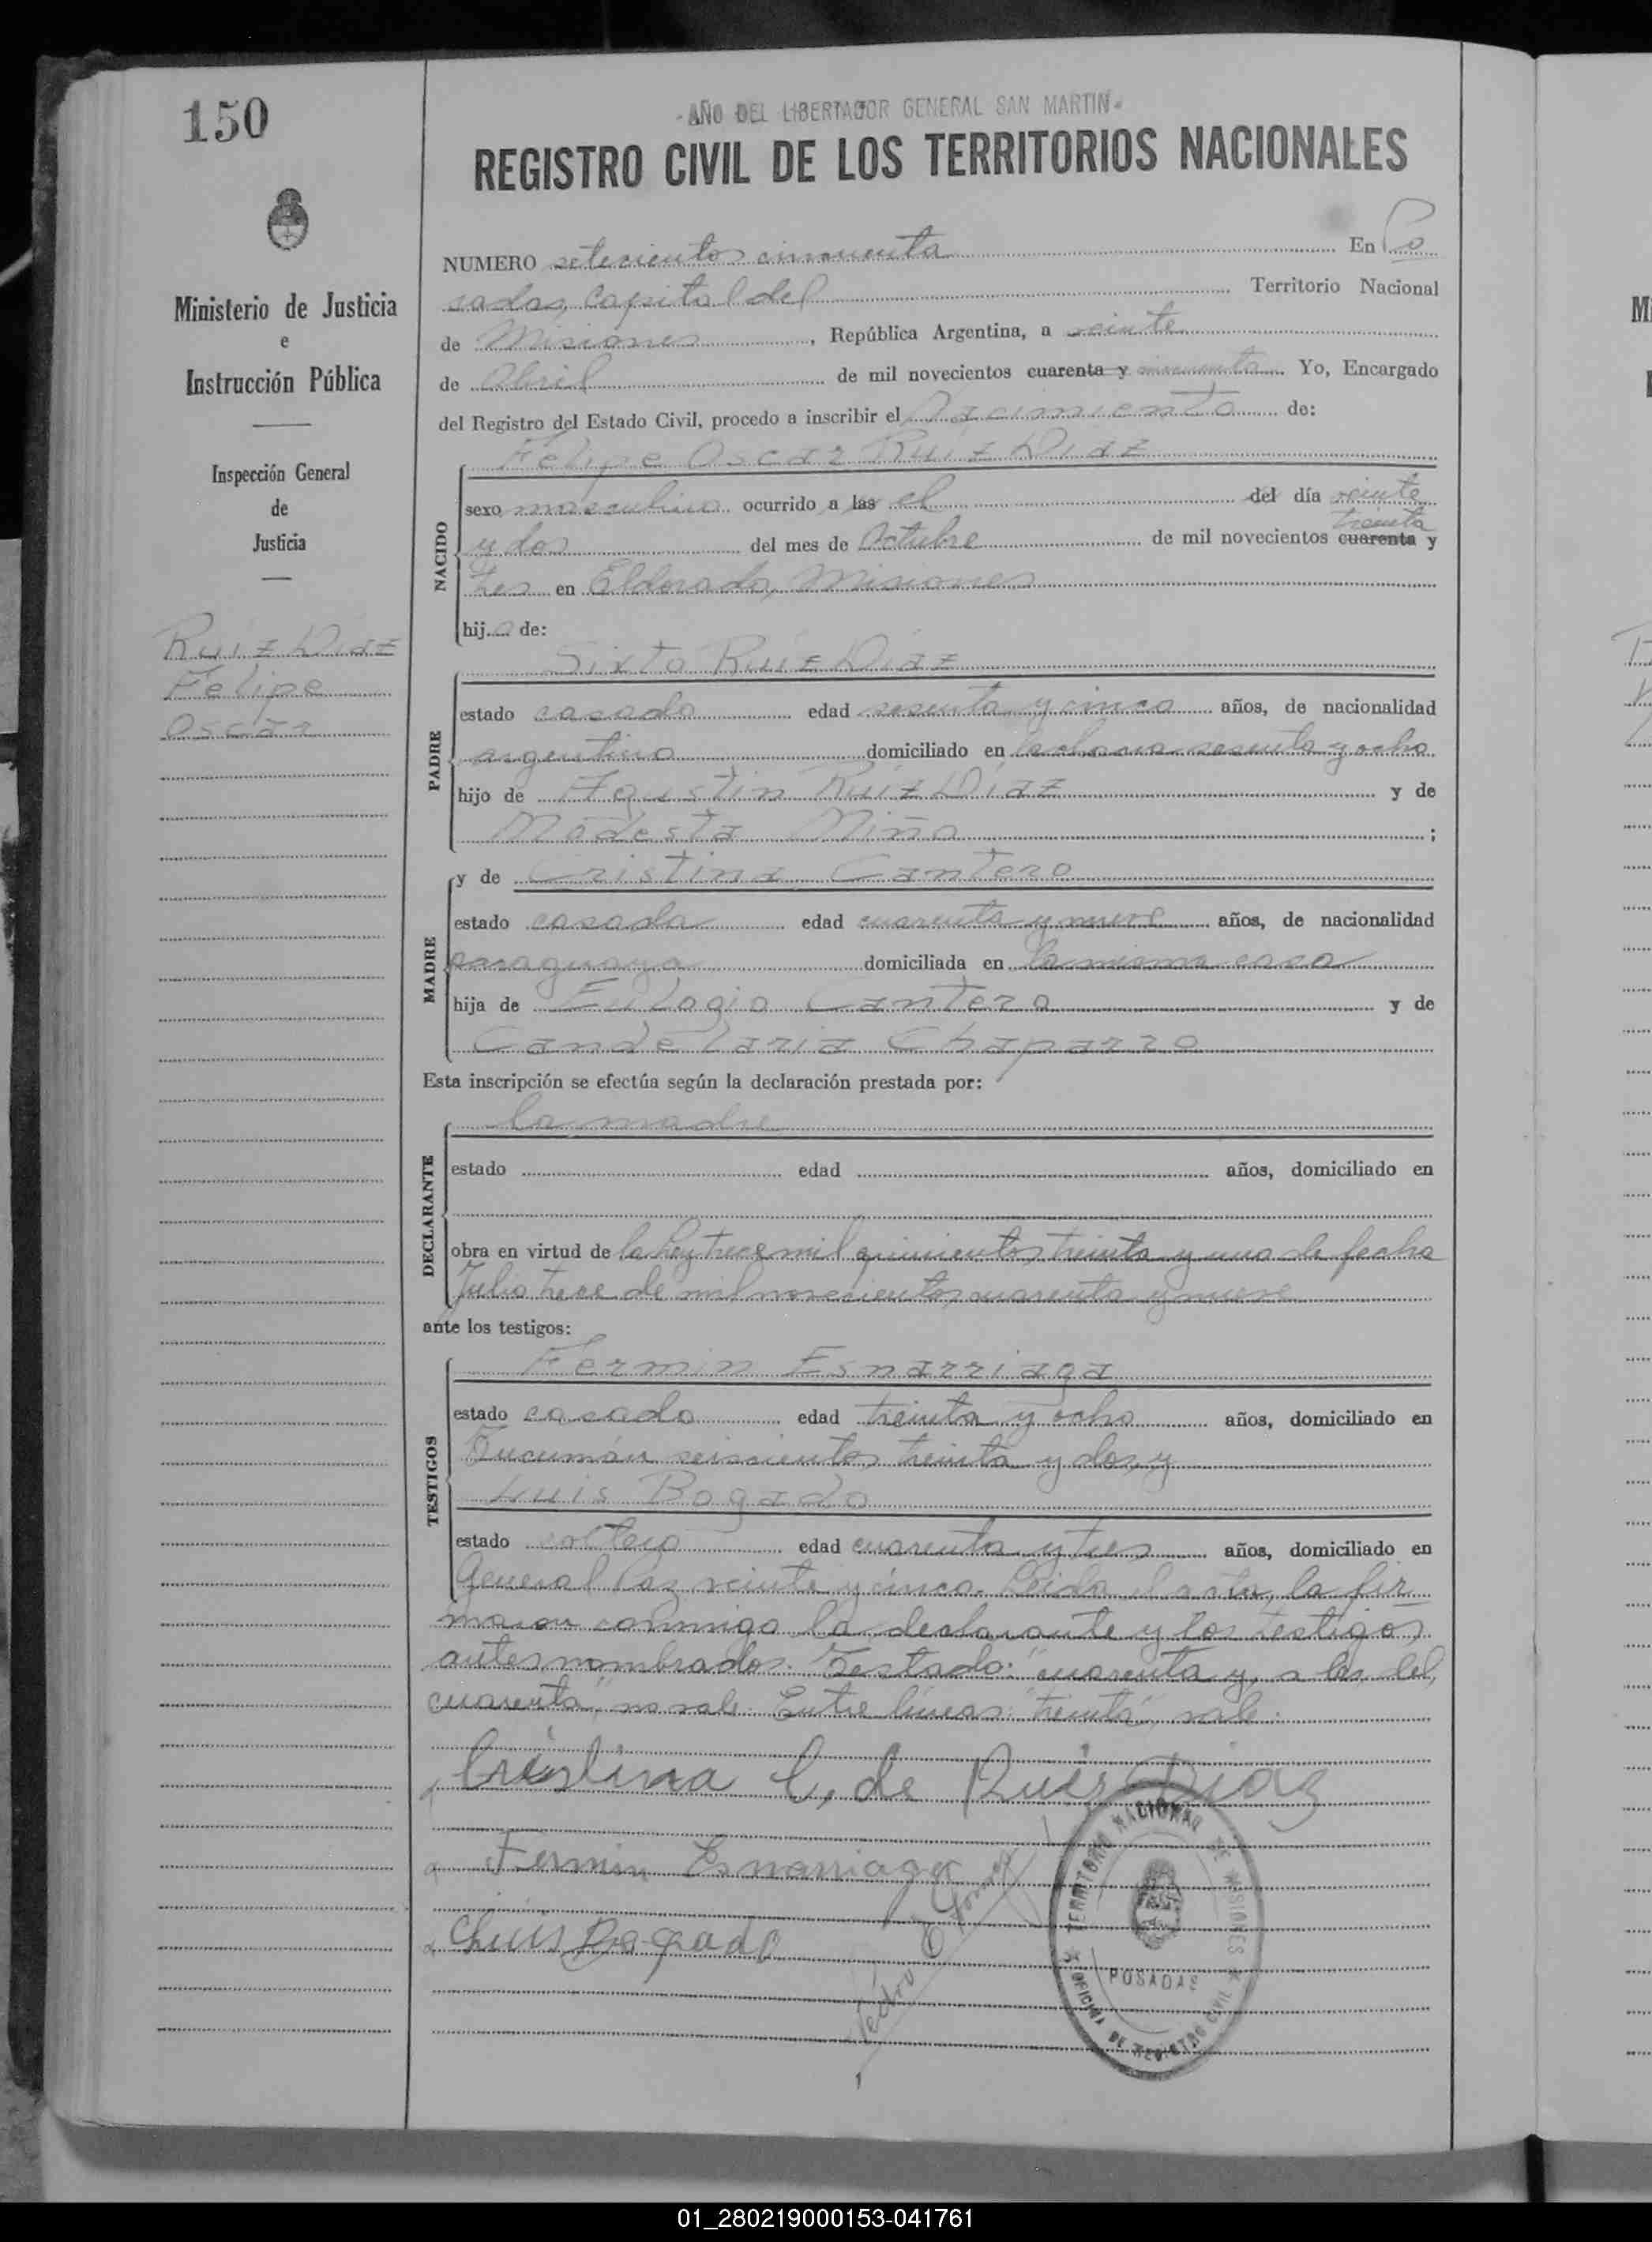 150
-AÑO DEL LIBERTADOR GENERAL SAN MARTIN-
REGISTRO CIVIL DE LOS TERRITORIOS NACIONALES
Ministerio de Justicia
e
Instrucción Pública
Inspección General
de
Justicia
Ruiz Diaz
Felipe
Oscar
NUMERO setecientos cincuenta En Po
sadas, Capital del Territorio Nacional
de Misiones, República Argentina, a veinte
de Abril de mil novecientos cuarenta y cincuenta. Yo, Encargado
del Registro del Estado Civil, procedo a inscribir el Nacimiento de:
Felipe Oscar Ruiz Diaz
NACIDO
sexo masculino ocurrido a las el del día veinte
y dos del mes de Octubre de mil novecientos cuarenta y
treinta
tres en Eldorado, Misiones
hijo de:
Sixto Ruiz Diaz
PADRE
estado casado edad sesenta y cinco años, de nacionalidad
argentino domiciliado en la chacra sesenta y ocho
hijo de Agustin Ruiz Díaz y de
Modesta Miño;
y de Cristina Cantero
MADRE
estado casada edad cuarenta y nueve años, de nacionalidad
paraguaya domiciliada en la misma casa
hija de Eulogio Cantero y de
Candelaria Chaparro
Esta inscripción se efectúa según la declaración prestada por:
la madre
DECLARANTE
estado edad años, domiciliado en
obra en virtud de la Ley trece mil quinientos treinta y uno de fecha
Julio trece de mil novecientos cuarenta y nueve
ante los testigos:
Fermin Esnarriaga
TESTIGOS
estado casado edad treinta y ocho años, domiciliado en
Tucumán seiscientos treinta y dos, y
Luis Bogado
estado soltero edad cuarenta y tres años, domiciliado en
General Paz veinte y cinco. Leida el acta, la fir
maron conmigo la declarante y los testigos
antes nombrados. Testado: "cuarenta y, a las, del,
cuarenta", no vale. Entre líneas: "treinta", vale.
Cristina C. de Ruis Diaz
Fermin Esnarriaga
Luis Bogado
TERRITORIO NACIONAL DE MISIONES
POSADAS
OFICINA DE REGISTRO CIVIL
01_280219000153-041761